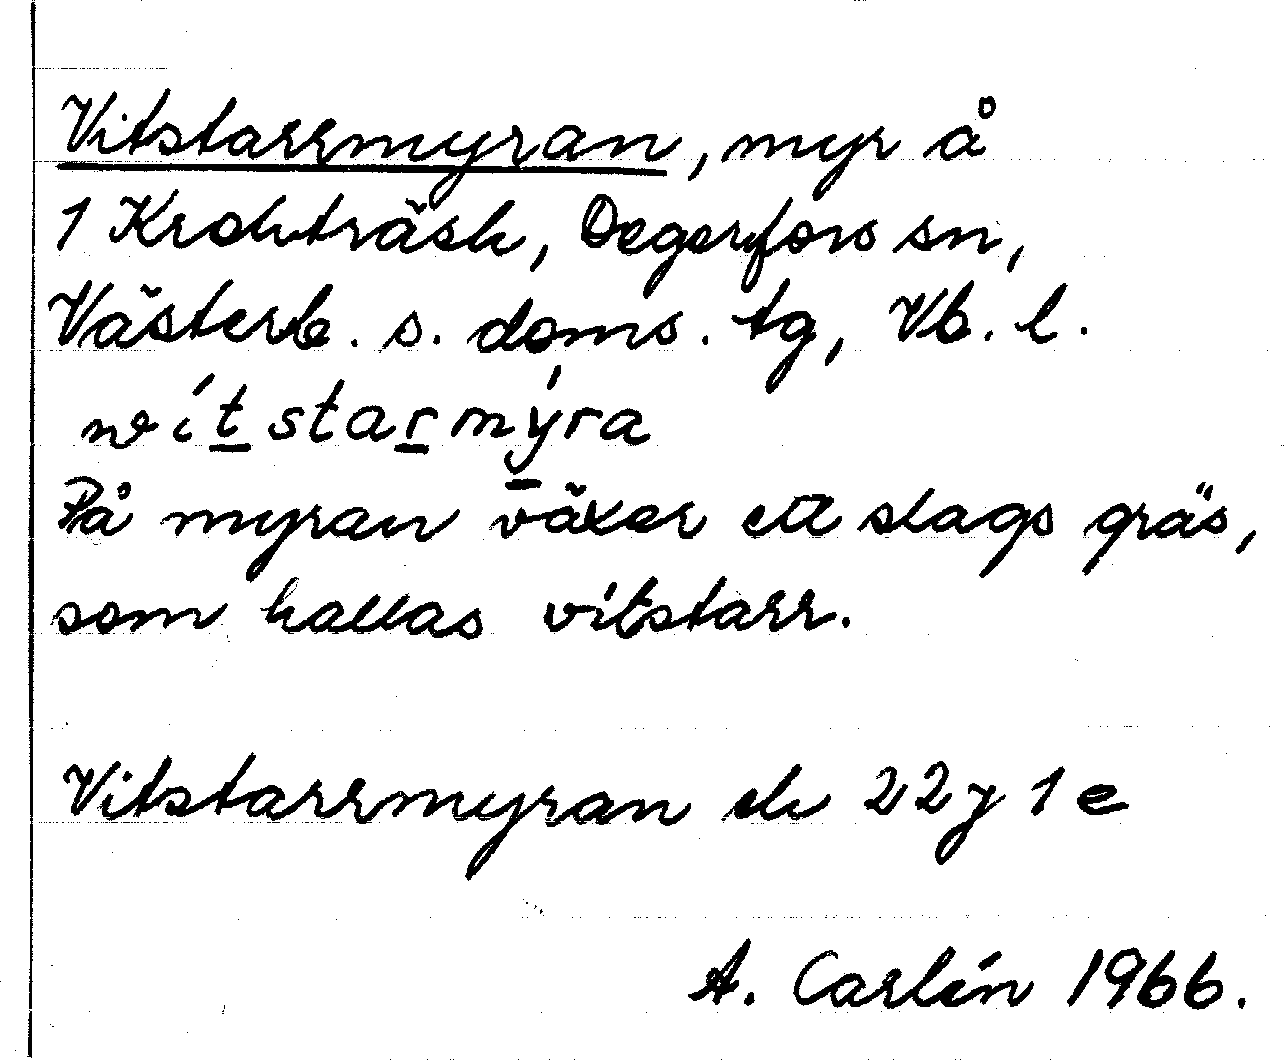 Vitstarrmyran, myr å
1 Krokträsk, Degerfors sn,
Västerb. s. doms. tg, Vb. l.
wítstarmýra
På myran växer ett slags gräs,
som kallas vitstarr.
Vitstarrmyran ek 22 j 1 e
A. Carlén 1966.